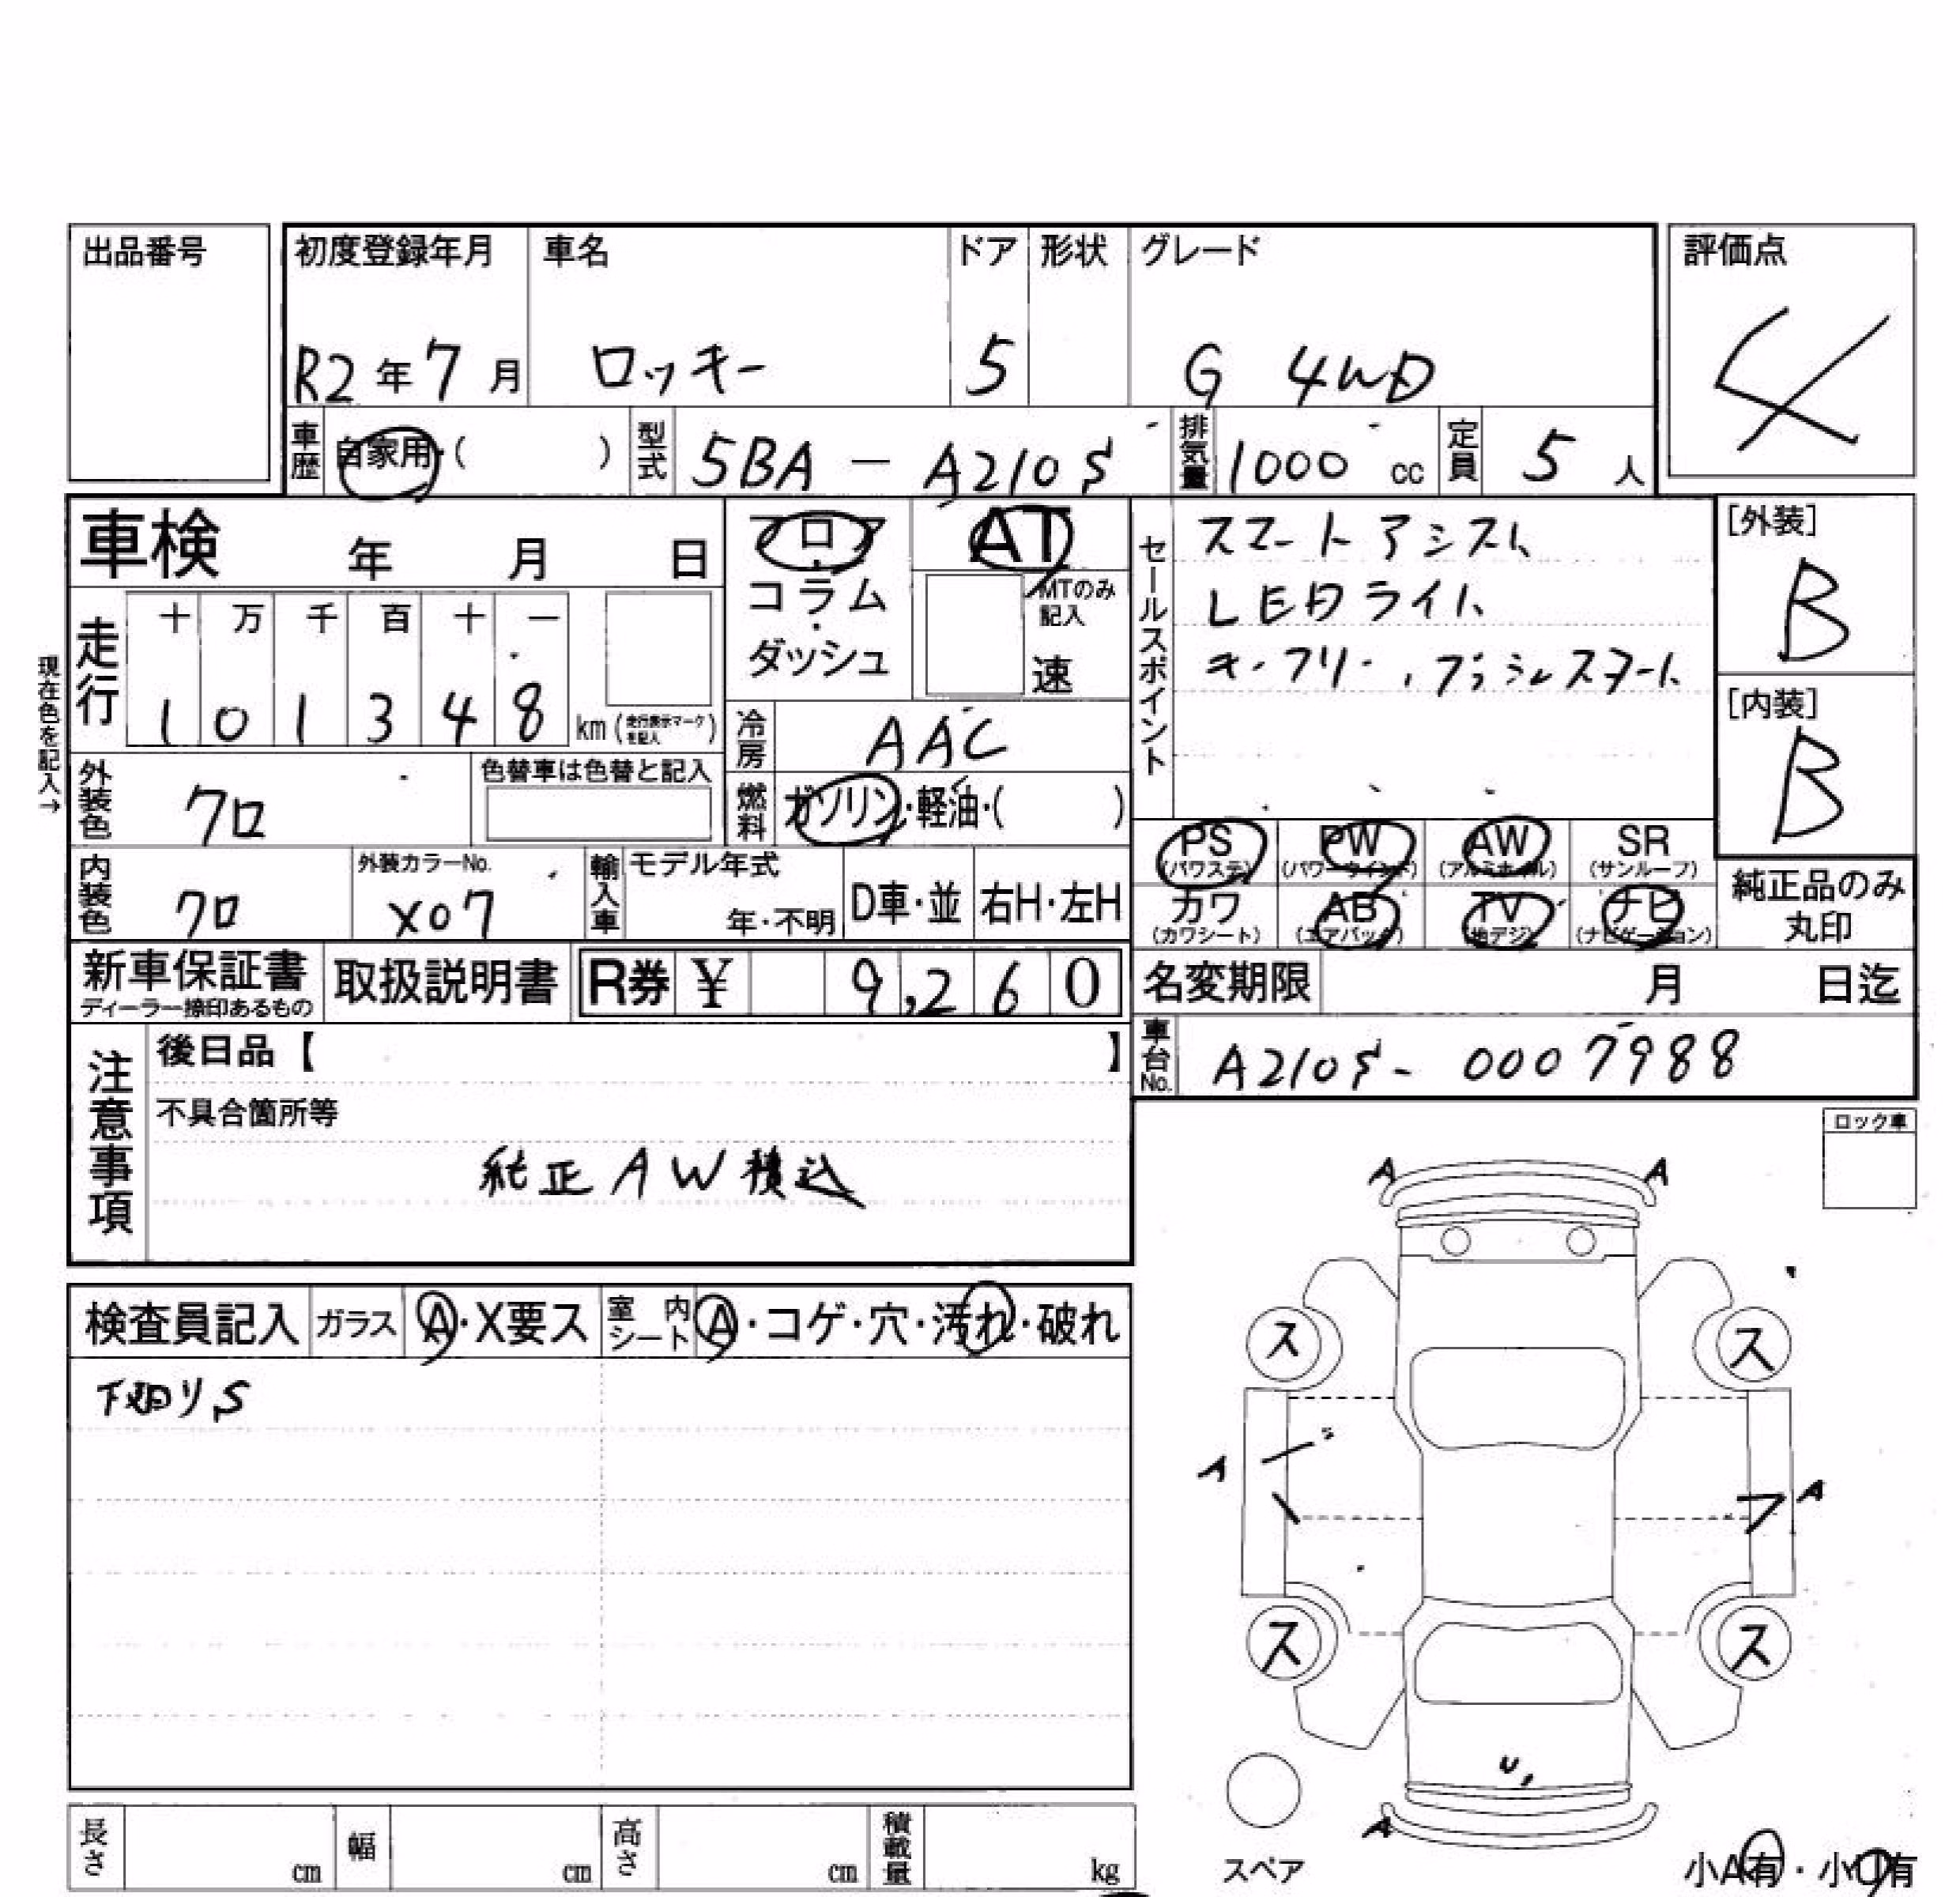 出品番号
初度登録年月 車名 ドア 形状 グレード 評価点
R2年7月 ロッキー 5 G 4WD 4
車歴 自家用・( ) 型式 5BA - A210S 排気量 1000 cc 定員 5 人
車検 年 月 日
フロア・コラム・ダッシュ
AT
MTのみ記入
速
セールスポイント
スマートアシスト
LEDライト
キーフリー、プッシュスタート
[外装]
B
[内装]
B
現在色を記入→
走行
十 万 千 百 十 一
1 0 1 3 4 8 km (走行表示マークを記入)
冷房 AAC
外装色 クロ 色替車は色替と記入
燃料 ガソリン・軽油・( )
PS (パワステ) PW (パワーウインド) AW (アルミホイル) SR (サンルーフ)
カワ (カワシート) AB (エアバック) TV (地デジ) ナビ (ナビゲーション)
純正品のみ
丸印
内装色 クロ 外装カラーNo. X07 輸入車 モデル年式 年・不明 D車・並 右H・左H
新車保証書 ディーラー捺印あるもの 取扱説明書 R券 ¥ 9,260
名変期限 月 日迄
車台No. A210S- 0007988
注意事項
後日品【 】
不具合箇所等
純正AW積込
ロック車
検査員記入 ガラス A・X要ス 室内シート A・コゲ・穴・汚れ・破れ
下廻りS
A A
ス ス
A A
ス ス
U1
A
スペア
小A有・小U有
長さ cm 幅 cm 高さ cm 積載量 kg